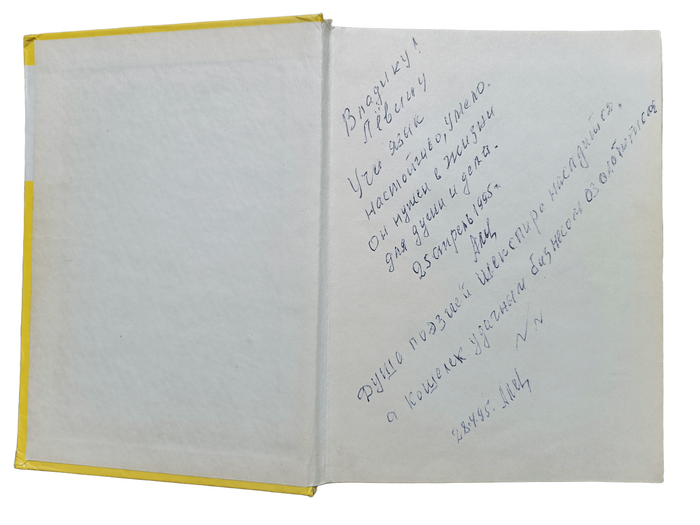 Владику!
Лёвину
Учи язык
настойчиво, умело.
Он нужен в жизни
для души и дела.
25 апрель 1995 г.
Душа поэзией Шекспира насладится,
а кошелек удачным бизнесом озолотится
28.4.95.